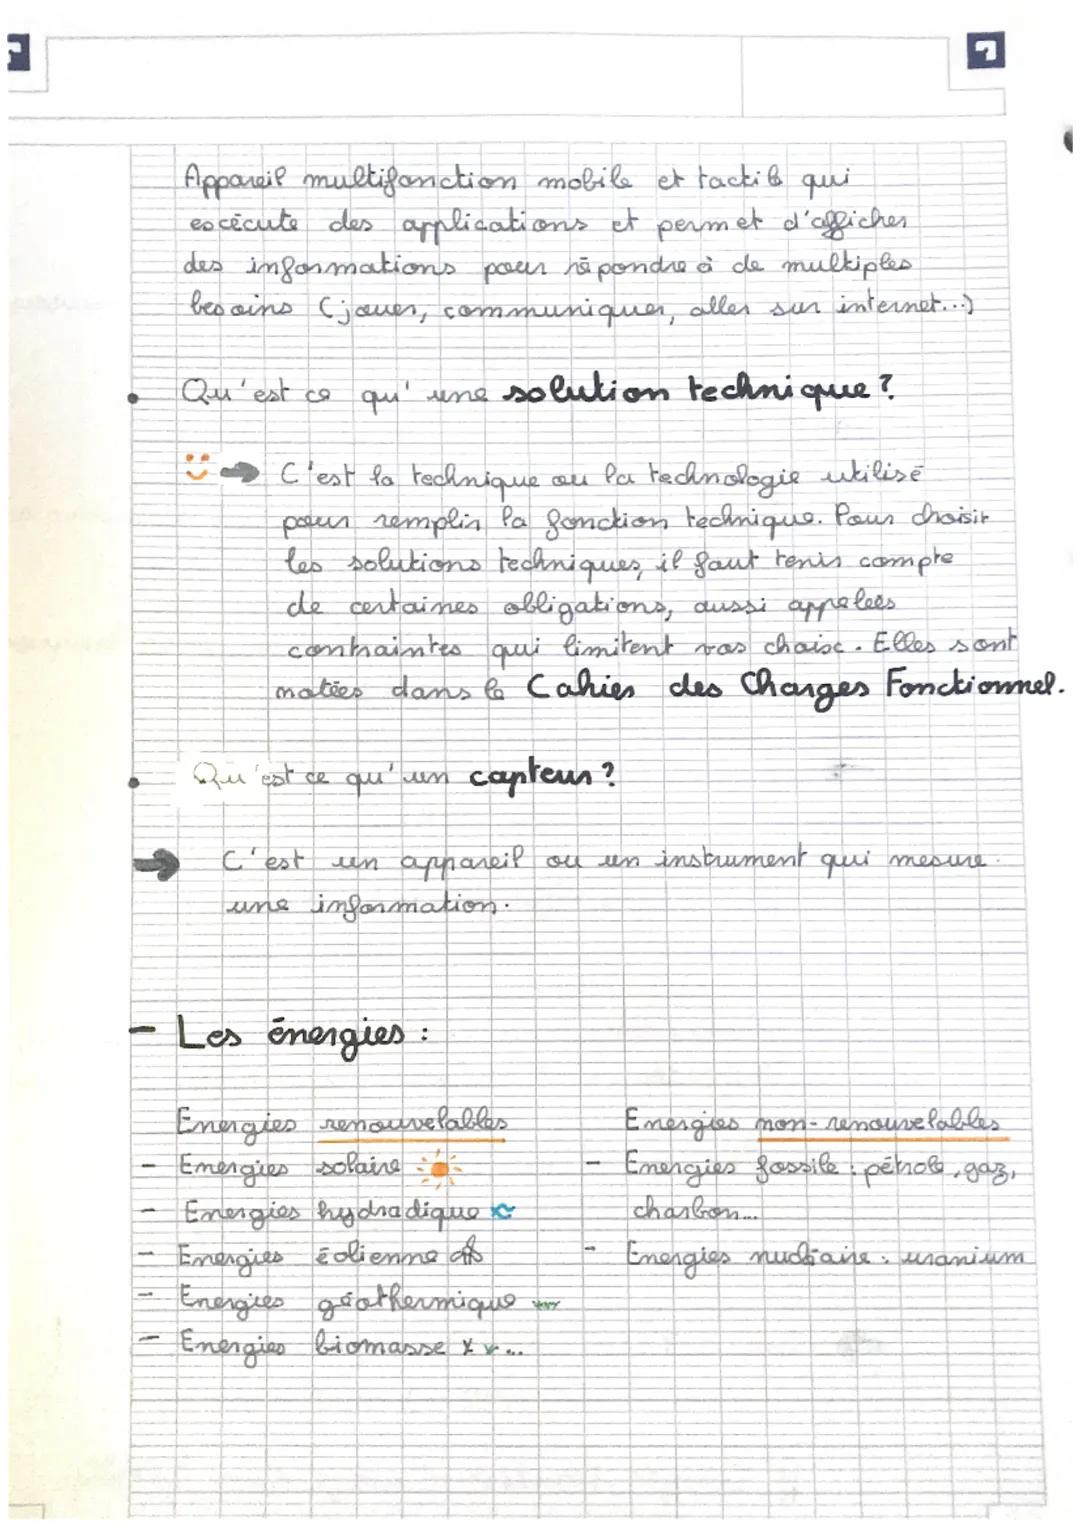 Appareil multifonction mobile et tactile qui
escécute des applications et permet d'afficher
des informations pour répondre à de multiples
besoins (jouer, communiquer, aller sur internet...)
• Qu'est ce qu'une solution technique ?
C'est la technique ou la technologie utilisé
pour remplir la fonction technique. Pour choisir
les solutions techniques, il faut tenir compte
de certaines obligations, aussi appelées
contraintes qui limitent vos choisc. Elles sont
notées dans le Cahier des Charges Fonctionnel.
• Qu'est ce qu'un capteur ?
C'est un appareil ou un instrument qui mesure
une information.
- Les énergies :
Energies renouvelables
- Energies solaire
- Energies hydradique
- Energies éolienne
- Energies géothermique
- Energies biomasse ...
Energies non-renouvelables
- Energies fossile : pétrole, gaz,
charbon...
- Energies nucléaire : uranium